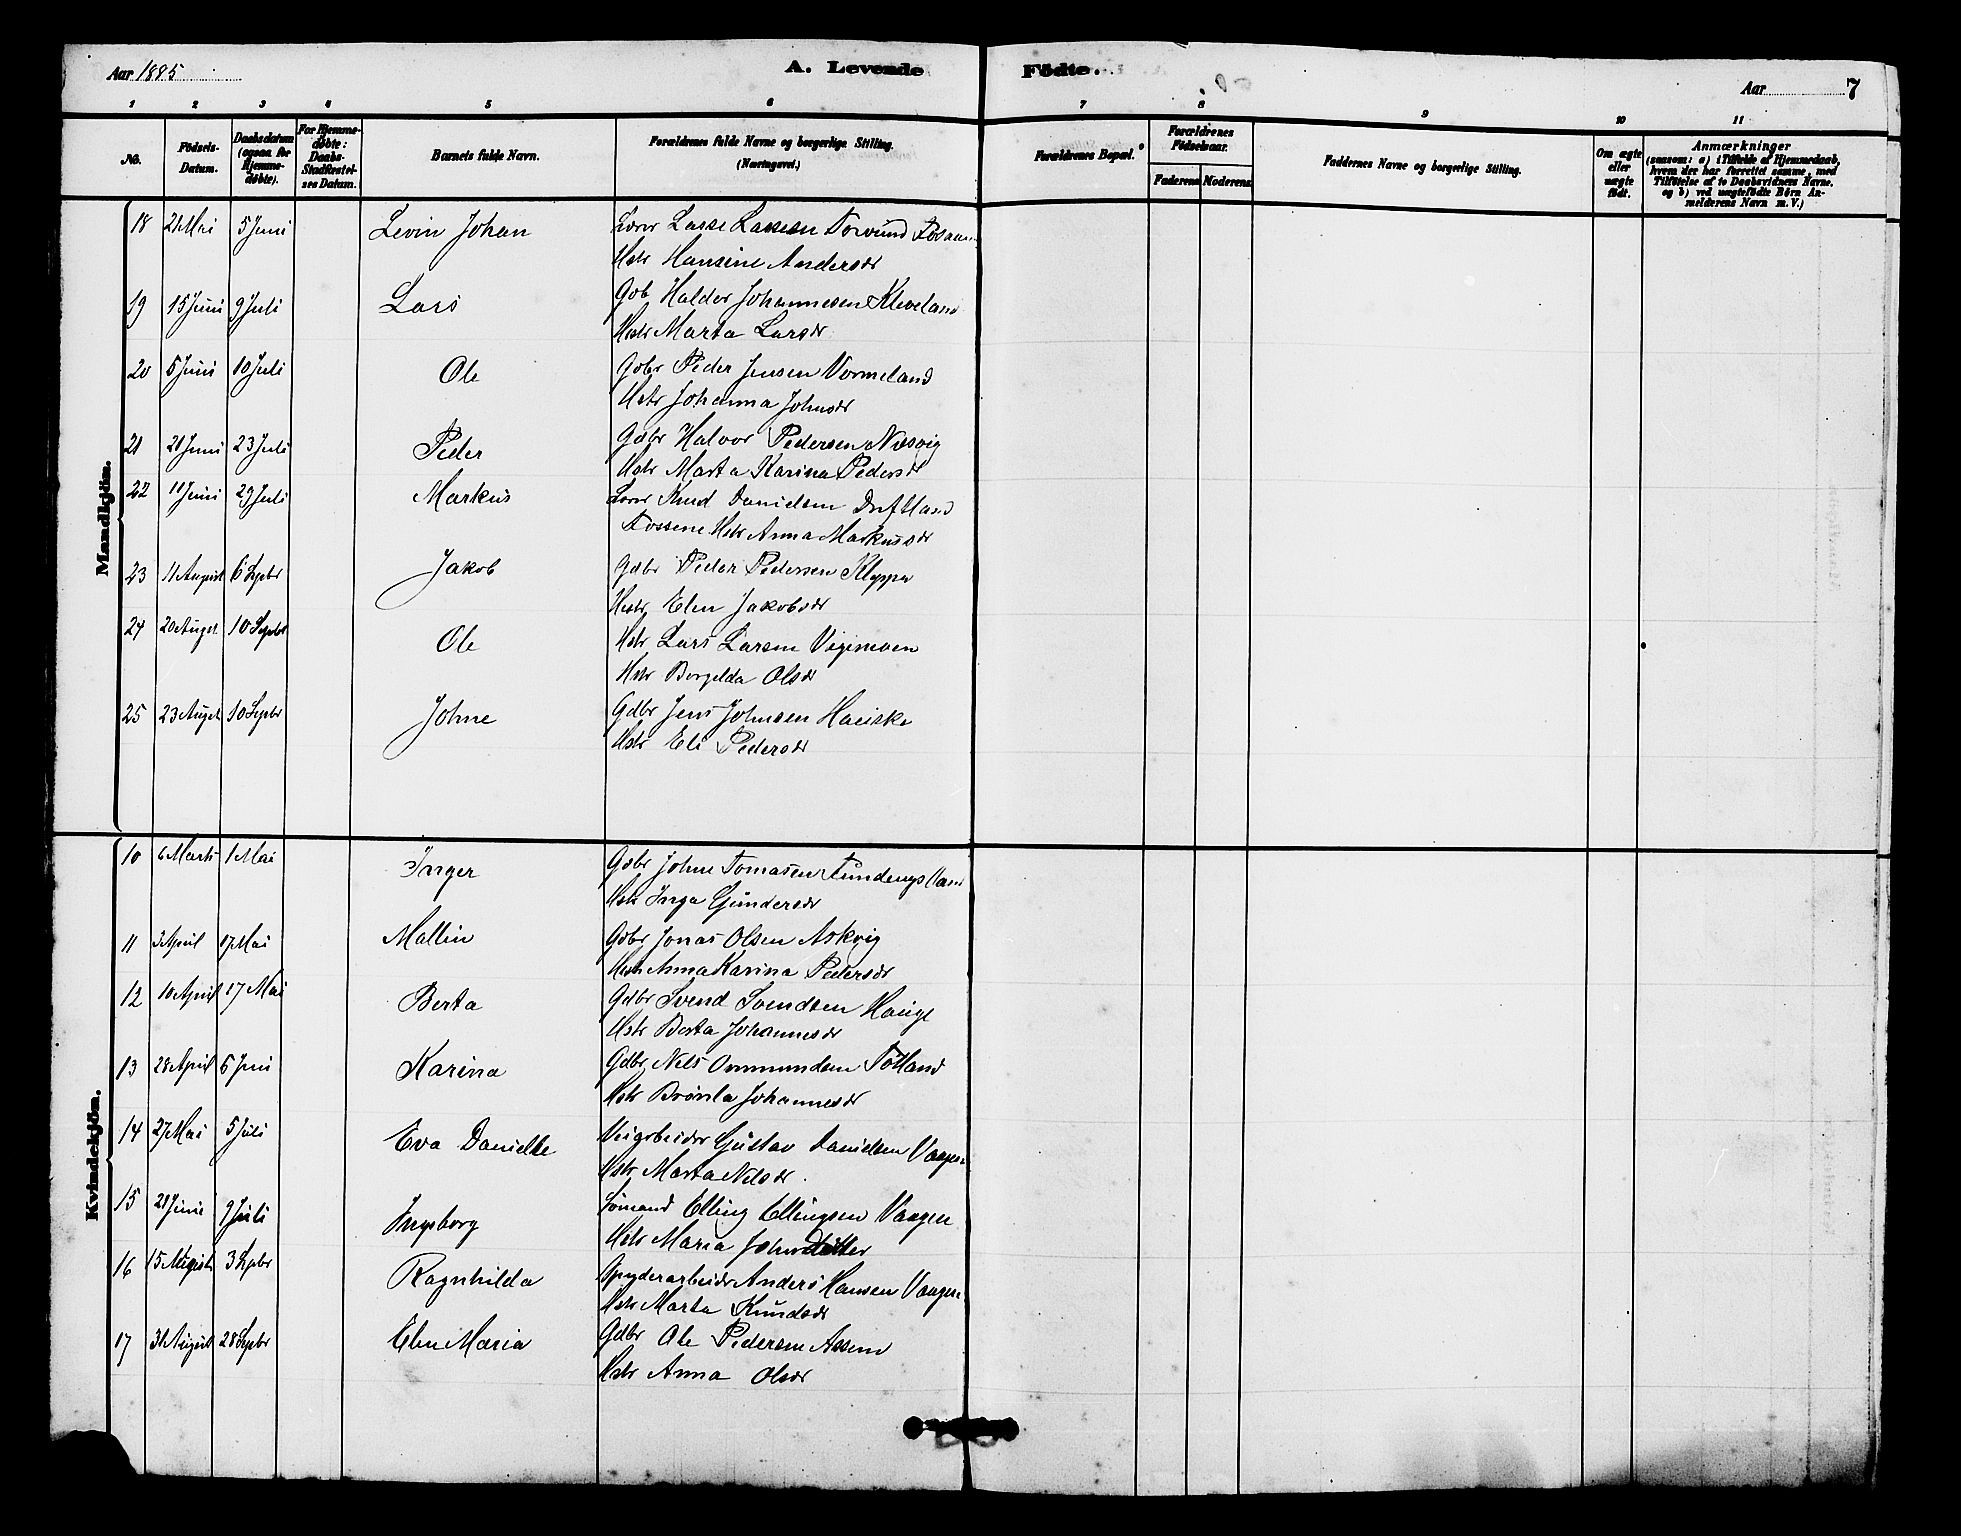 Aar 1885
A. Levende Födte.
Aar 7
1 2 3 4 5 6 7 8 9 10 11
No.
Födsels-Datum.
Daabsdatum (ogsaa for Hjemmedöbte).
For Hjemmedöbte: Daabs-Stadfæstelses Datum.
Barnets fulde Navn.
Forældrenes fulde Navne og borgerlige Stilling.
(Næringsvei.)
Forældrenes Bopæl.
Forældrenes Födselsaar.
Faderens
Moderens
Faddernes Navne og borgerlige Stilling.
Om ægte eller uægte födt.
Anmærkninger
(saasom: a) i Tilfælde af Hjemmedaab, hvem der har forrettet samme, med Tilföielse af to Daabsvidners Navne. og b) ved uægtefödte Börn Anmelderens Navn m. V.)
Mandkjön.
18 21 Mai 5 Juni Levin Johan Lærer Lasse Lassesen Torvund
Hstr Hansine Andersdr
19 15 Juni 9 Juli Lars Gdb Haldor Johannesen Kleveland
Hstr Marta Larsdr
20 5 Juni 10 Juli Ole Gdbr Peder Jensen Vormeland
Hstr Johanna Johnsdr
21 21 Juni 23 Juli Peder Gdbr Halvor Pedersen Næsvig
Hstr Marta Karina Pedersdr
22 11 Juni 29 Juli Markus Lærer Knud Danielsen
Fossene Hstr Anna Markusdr
23 11 August 6 Sepbr Jakob Gdbr Peder Pedersen Kleppe
Hstr Elen Jakobsdr
24 20 Augst 10 Sepbr Ole Lars Larsen
Hstr Bergelda Olsdr
25 23 Augst 10 Sepbr Johne Gdbr Jens Johnsen
Hstr Eli Pedersdr
Kvindekjön.
10 6 Marts 1 Mai Inger Gdbr Johne Tomasen
Hstr Inga Gundersdr
11 3 April 17 Mai Mallin Gdbr Jonas Olsen Askvig
Hstr Anna Karina Pedersdr
12 10 April 17 Mai Berta Gdbr Svend Svendsen Hauge
Hstr Berta Johannesdr
13 28 April 5 Juni Karina Gdbr Nels Ommundsen Totland
Hstr Brønla Johannesdr
14 27 Mai 5 Juli Eva Danielle Veigarbeider Gustav Danielsen Vaagen
Hstr Marta Nelsdr.
15 21 Juni 9 Juli Ingeborg Sømand Elling Ellingsen Vaagen
Hstr Maria Johnsdatter
16 15 August 3 Sepbr Ragnhilda Anders Hansen Vaagen
Hstr Marta Knudsdr
17 31 August 28 Sepbr Elen Maria Gdbr Ole Pedersen Assem
Hstr Anna Olsdr